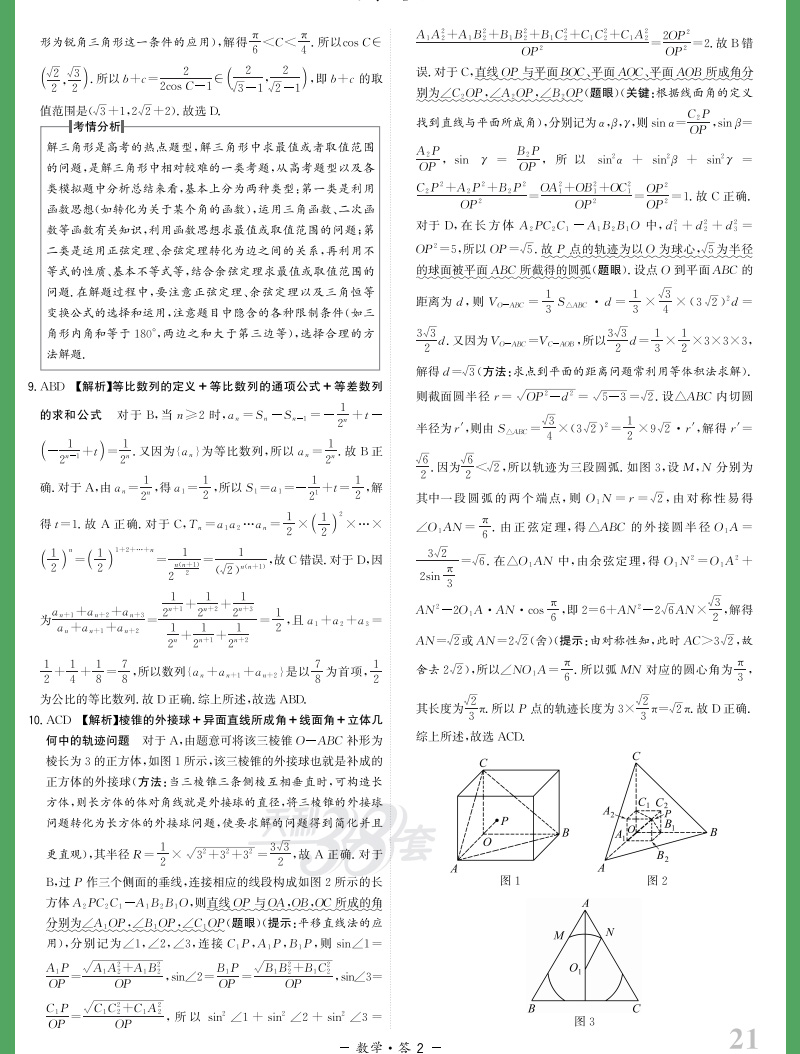 形为锐角三角形这一条件的应用),解得π/6<C<π/4. 所以cos C∈
(√2/2,√3/2). 所以 b+c=2/(2cos C-1)∈(2/(√3-1),2/(√2-1)),即 b+c 的取
值范围是(√3+1,2√2+2). 故选 D.
考情分析
解三角形是高考的热点题型,解三角形中求最值或者取值范围
的问题,是解三角形中相对较难的一类考题,从高考题型以及各
类模拟题中分析总结来看,基本上分为两种类型:第一类是利用
函数思想(如转化为关于某个角的函数),运用三角函数、二次函
数等函数有关知识,利用函数思想求最值或取值范围的问题;第
二类是运用正弦定理、余弦定理转化为边之间的关系,再利用不
等式的性质、基本不等式等,结合余弦定理求最值或取值范围的
问题. 在解题过程中,要注意正弦定理、余弦定理以及三角恒等
变换公式的选择和运用,注意题目中隐含的各种限制条件(如三
角形内角和等于 180°,两边之和大于第三边等),选择合理的方
法解题.
9. ABD 【解析】等比数列的定义+等比数列的通项公式+等差数列
的求和公式 对于 B,当 n≥2 时,aₙ=Sₙ-Sₙ₋₁=-1/2ⁿ+t-
(-1/2ⁿ⁻¹+t)=1/2ⁿ. 又因为{aₙ}为等比数列,所以 aₙ=1/2ⁿ. 故 B 正
确. 对于 A,由 aₙ=1/2ⁿ,得 a₁=1/2,所以 S₁=a₁=-1/2¹+t=1/2,解
得 t=1. 故 A 正确. 对于 C,Tₙ=a₁a₂…aₙ=1/2×(1/2)²×…×
(1/2)ⁿ=(1/2)^(1+2+…+n)=1/2^(n(n+1)/2)=1/(√2)^(n(n+1)),故 C 错误. 对于 D,因
为(aₙ₊₁+aₙ₊₂+aₙ₊₃)/(aₙ+aₙ₊₁+aₙ₊₂)=(1/2ⁿ⁺¹+1/2ⁿ⁺²+1/2ⁿ⁺³)/(1/2ⁿ+1/2ⁿ⁺¹+1/2ⁿ⁺²)=1/2,且 a₁+a₂+a₃=
1/2+1/4+1/8=7/8,所以数列{aₙ+aₙ₊₁+aₙ₊₂}是以7/8为首项,1/2
为公比的等比数列. 故 D 正确. 综上所述,故选 ABD.
10. ACD 【解析】棱锥的外接球+异面直线所成角+线面角+立体几
何中的轨迹问题 对于 A,由题意可将该三棱锥 O-ABC 补形为
棱长为 3 的正方体,如图 1 所示,该三棱锥的外接球也就是补成的
正方体的外接球(方法:当三棱锥三条侧棱互相垂直时,可构造长
方体,则长方体的体对角线就是外接球的直径,将三棱锥的外接球
问题转化为长方体的外接球问题,使要求解的问题得到简化并且
更直观),其半径 R=1/2×√(3²+3²+3²)=3√3/2,故 A 正确. 对于
B,过 P 作三个侧面的垂线,连接相应的线段构成如图 2 所示的长
方体 A₂PC₂C₁-A₁B₂B₁O,则直线 OP 与OA,OB,OC 所成的角
分别为∠A₁OP,∠B₁OP,∠C₁OP(题眼)(提示:平移直线法的应
用),分别记为∠1,∠2,∠3,连接 C₁P,A₁P,B₁P,则 sin∠1=
A₁P/OP=√(A₁A₂²+A₁B₂²)/OP,sin∠2=B₁P/OP=√(B₁B₂²+B₁C₂²)/OP,sin∠3=
C₁P/OP=√(C₁C₂²+C₁A₂²)/OP,所以 sin²∠1+sin²∠2+sin²∠3=
(A₁A₂²+A₁B₂²+B₁B₂²+B₁C₂²+C₁C₂²+C₁A₂²)/OP²=2OP²/OP²=2. 故 B 错
误. 对于 C,直线 OP 与平面 BOC、平面 AOC、平面 AOB 所成角分
别为∠C₂OP,∠A₂OP,∠B₂OP(题眼)(关键:根据线面角的定义
找到直线与平面所成角),分别记为 α,β,γ,则 sin α=C₂P/OP,sin β=
A₂P/OP,sin γ=B₂P/OP,所以 sin²α+sin²β+sin²γ=
(C₂P²+A₂P²+B₂P²)/OP²=(OA₁²+OB₁²+OC₁²)/OP²=OP²/OP²=1. 故 C 正确.
对于 D,在长方体 A₂PC₂C₁-A₁B₂B₁O 中,d₁²+d₂²+d₃²=
OP²=5,所以 OP=√5. 故 P 点的轨迹为以 O 为球心,√5为半径
的球面被平面 ABC 所截得的圆弧(题眼). 设点 O 到平面 ABC 的
距离为 d,则 V_{O-ABC}=1/3 S△ABC·d=1/3×√3/4×(3√2)²d=
3√3/2 d. 又因为 V_{O-ABC}=V_{C-AOB},所以3√3/2 d=1/3×1/2×3×3×3,
解得 d=√3(方法:求点到平面的距离问题常利用等体积法求解).
则截面圆半径 r=√(OP²-d²)=√(5-3)=√2. 设△ABC 内切圆
半径为 r′,则由 S△ABC=√3/4×(3√2)²=1/2×9√2·r′,解得 r′=
√6/2. 因为√6/2<√2,所以轨迹为三段圆弧. 如图 3,设 M,N 分别为
其中一段圆弧的两个端点,则 O₁N=r=√2,由对称性易得
∠O₁AN=π/6. 由正弦定理,得△ABC 的外接圆半径 O₁A=
3√2/(2sin π/3)=√6. 在△O₁AN 中,由余弦定理,得 O₁N²=O₁A²+
AN²-2O₁A·AN·cos π/6,即 2=6+AN²-2√6AN×√3/2,解得
AN=√2或 AN=2√2(舍)(提示:由对称性知,此时 AC>3√2,故
舍去 2√2),所以∠NO₁A=π/6. 所以弧 MN 对应的圆心角为π/3,
其长度为√2/3 π. 所以 P 点的轨迹长度为 3×√2/3 π=√2π. 故 D 正确.
综上所述,故选 ACD.
C
P
O
B
A
图 1
C
A₂
C₁ C₂
P
O
A₁
B₁
B
B₂
A
图 2
A
M
N
O₁
B
C
图 3
天利38套
— 数学·答 2 —
21